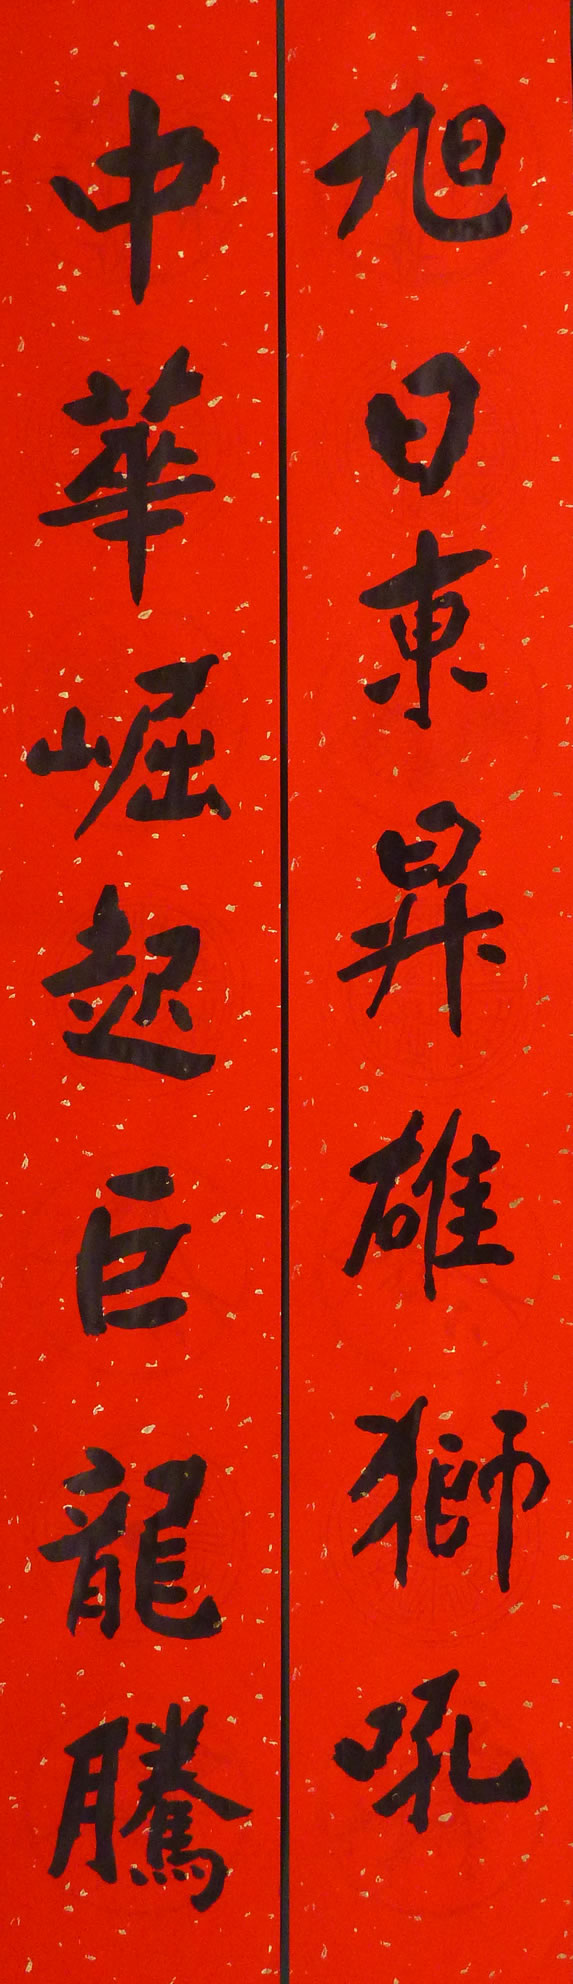 旭日東昇雄獅吼
中華崛起巨龍騰